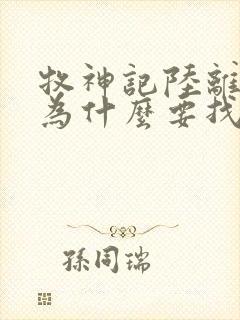 牧神記陸離
為什麼要找
孫同瑞